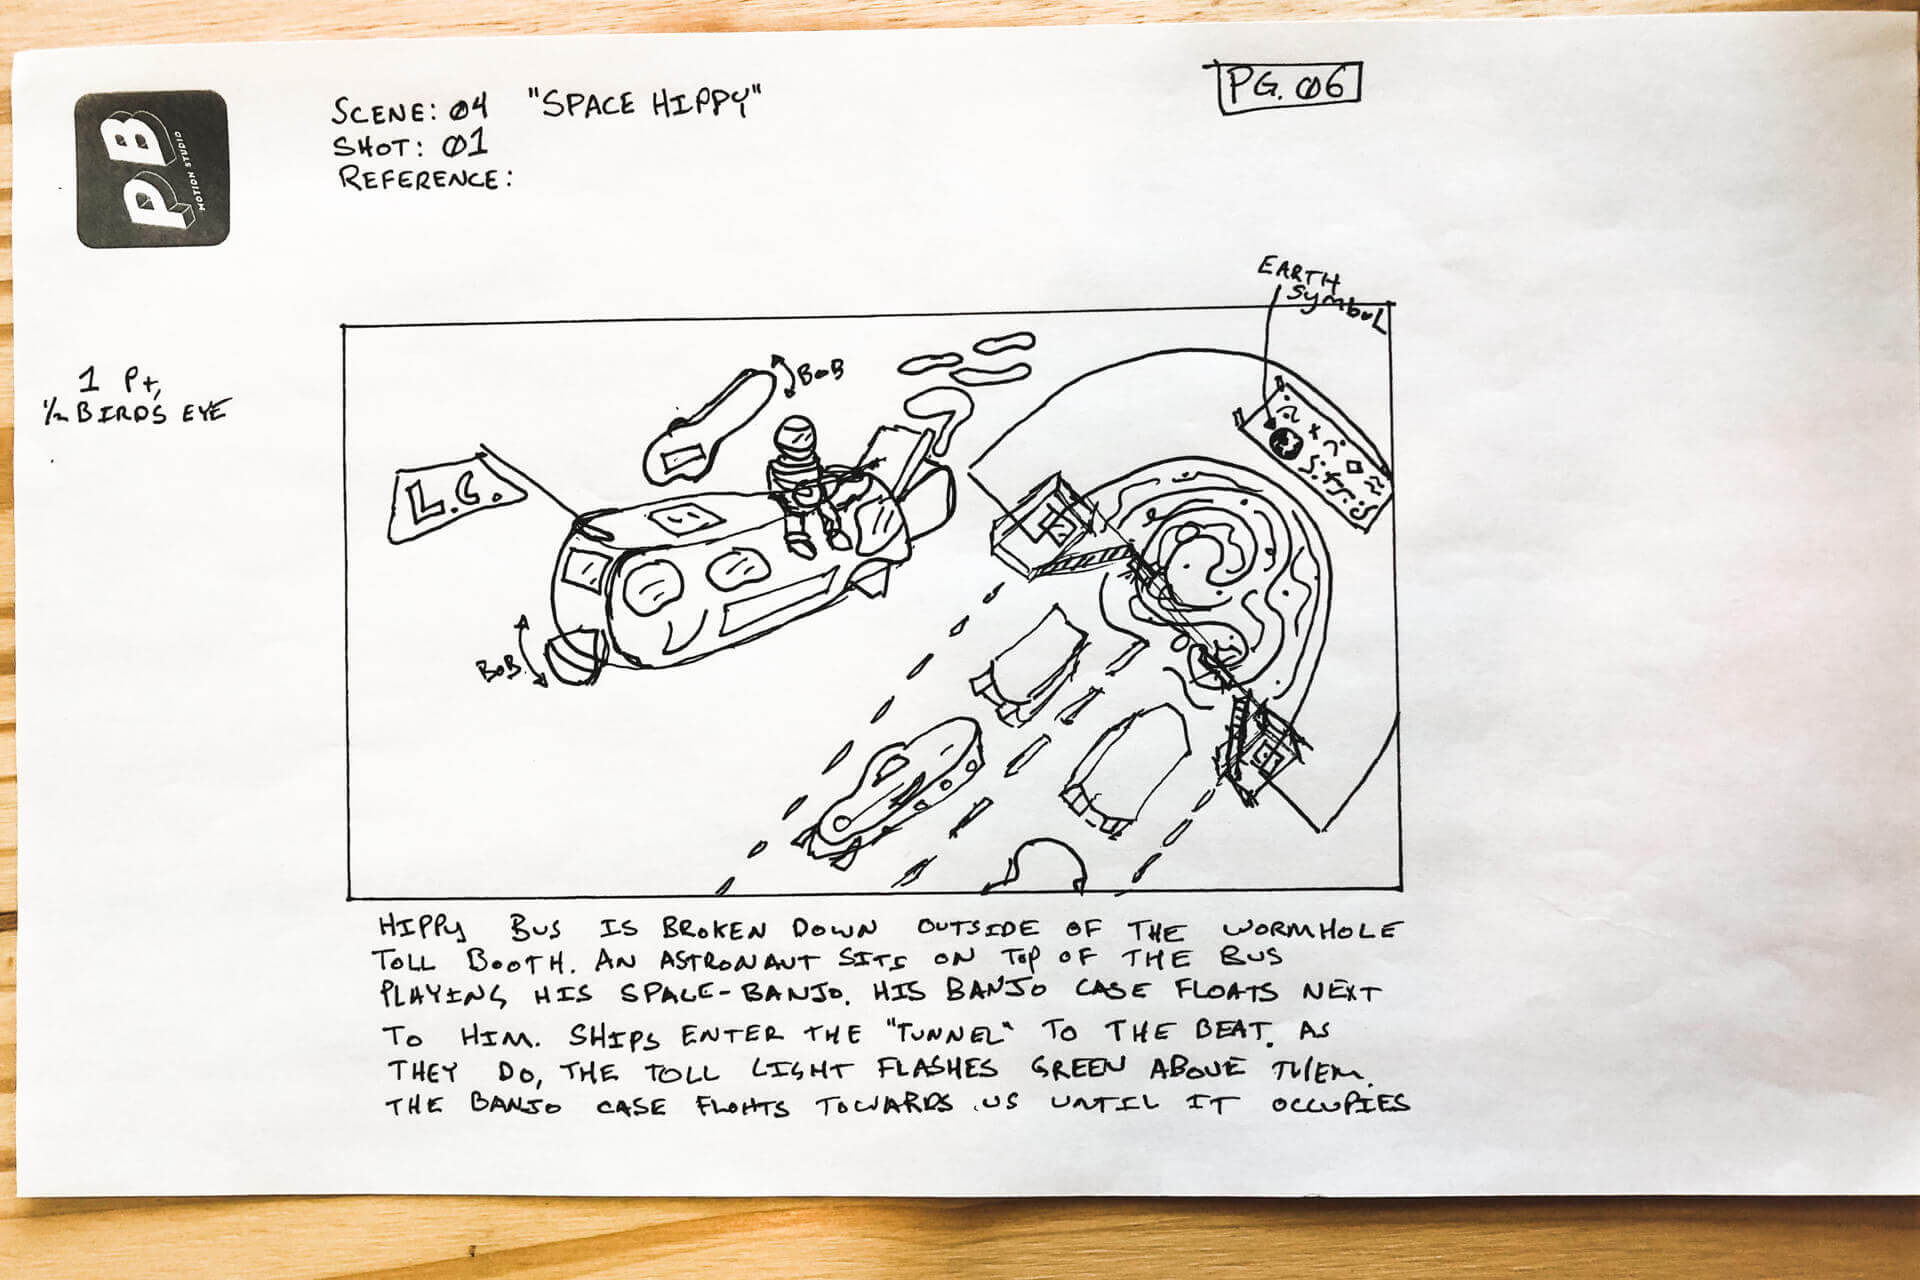 PB
MOTION STUDIO
SCENE: 04 "SPACE HIPPY"
SHOT: 01
REFERENCE:
PG. 06
1 Pt,
1/2 BIRDS EYE
EARTH
SymboL
BOB
L.C.
BOB
HIPPY BUS IS BROKEN DOWN OUTSIDE OF THE WORMHOLE
TOLL BOOTH. AN ASTRONAUT SITS ON TOP OF THE BUS
PLAYING HIS SPACE-BANJO. HIS BANJO CASE FLOATS NEXT
TO HIM. SHIPS ENTER THE "TUNNEL" TO THE BEAT. AS
THEY DO, THE TOLL LIGHT FLASHES GREEN ABOVE THEM.
THE BANJO CASE FLOATS TOWARDS US UNTIL IT OCCUPIES